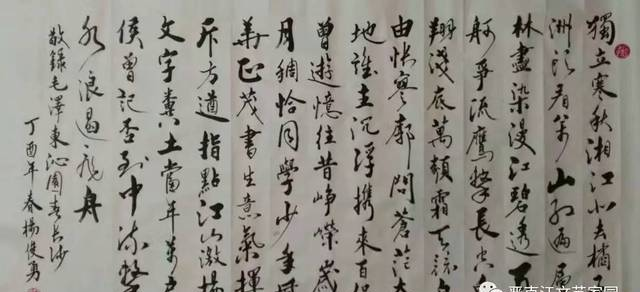 獨立寒秋湘江北去橘子
洲頭看萬山紅遍層
林盡染漫江碧透百
舸爭流鷹擊長空魚
翔淺底萬類霜天競自
由悵寥廓問蒼茫大
地誰主沉浮携來百侶
曾遊憶往昔崢嶸歲
月稠恰同學少年風
華正茂書生意氣揮
斥方遒指點江山激揚
文字糞土當年萬戶
侯曾記否到中流擊
水浪遏飛舟
敬錄毛澤東沁園春長沙
丁酉年春楊俊
江文艺家园